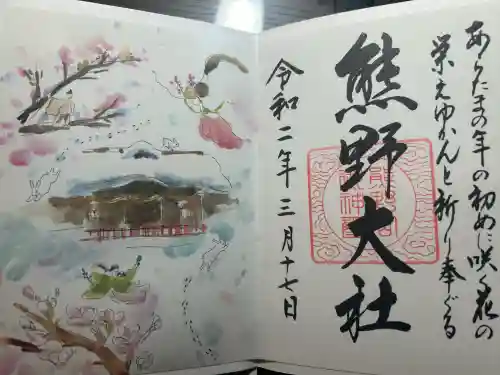 あらたまの年の初めに咲く花の
栄えゆかんと祈り奉ぐる
熊野大社
令和二年三月十七日